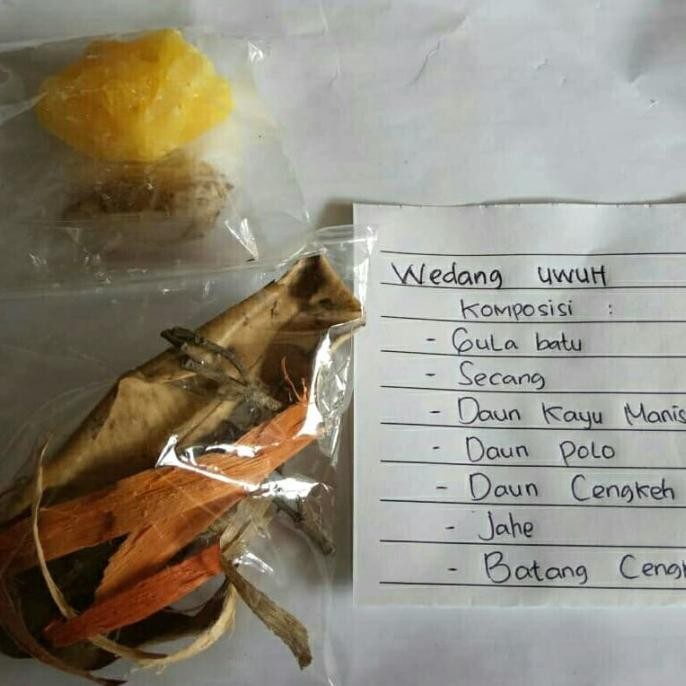 Wedang UWUH
Komposisi :
- Gula batu
- Secang
- Daun Kayu Manis
- Daun Polo
- Daun Cengkeh
- Jahe
- Batang